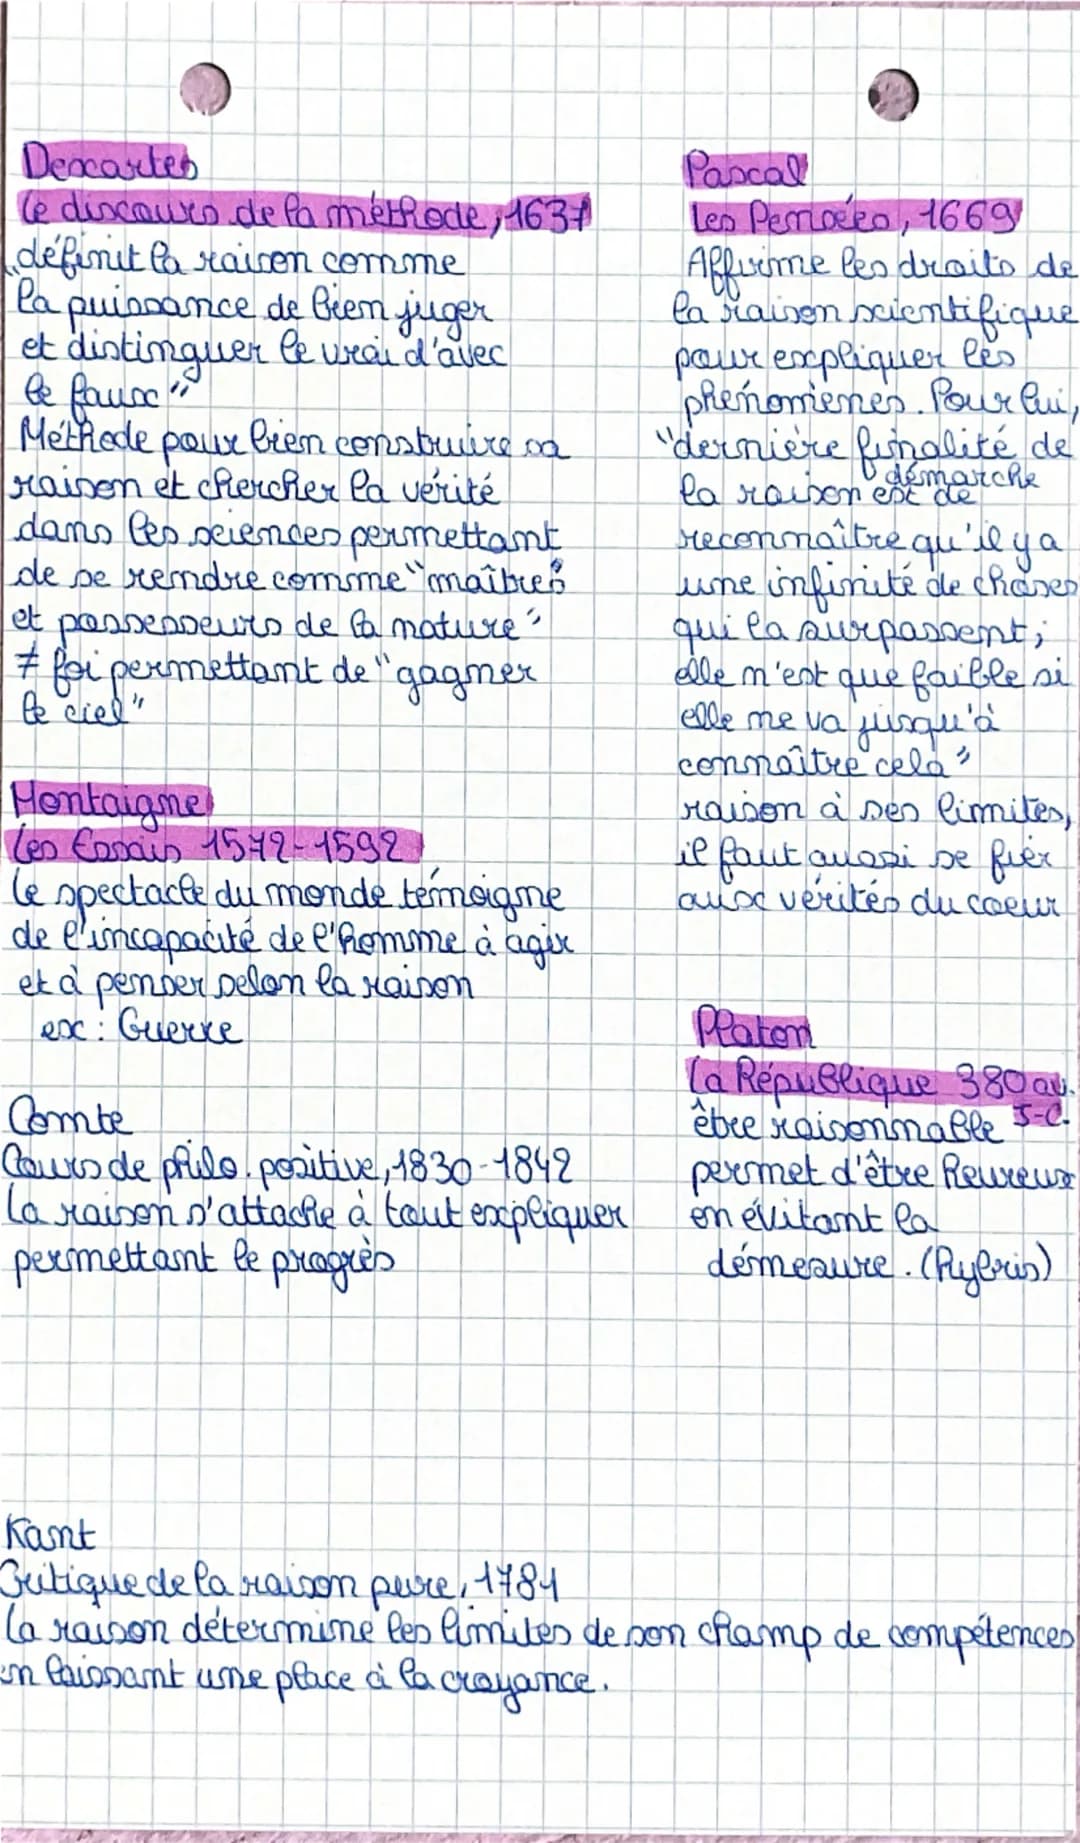 Descartes
Le discours de la méthode, 1637
"définit la raison comme
la puissance de bien juger
et distinguer le vrai d'avec
le faux"
Méthode pour bien construire sa
raison et chercher la vérité
dans les sciences permettant
de se rendre comme "maîtres
et possesseurs de la nature"
≠ foi permettant de "gagner
le ciel"
Montaigne
Les Essais 1572-1592
Le spectacle du monde témoigne
de l'incapacité de l'homme à agir
et à penser selon la raison
ex : Guerre
Comte
Cours de philo. positive, 1830-1842
La raison s'attache à tout expliquer
permettant le progrès
Pascal
Les Pensées, 1669
Affirme les droits de
la raison scientifique
pour expliquer les
phénomènes. Pour lui,
"dernière finalité de
démarche
la raison est de
reconnaître qu'il y a
une infinité de choses
qui la surpassent ;
elle n'est que faible si
elle ne va jusqu'à
connaître cela"
raison à ses limites,
il faut aussi se fier
aux vérités du coeur
Platon
La République 380 av.
J-C.
être raisonnable
permet d'être heureux
en évitant la
démesure. (hybris)
Kant
Critique de la raison pure, 1781
La raison détermine les limites de son champ de compétences
en laissant une place à la croyance.